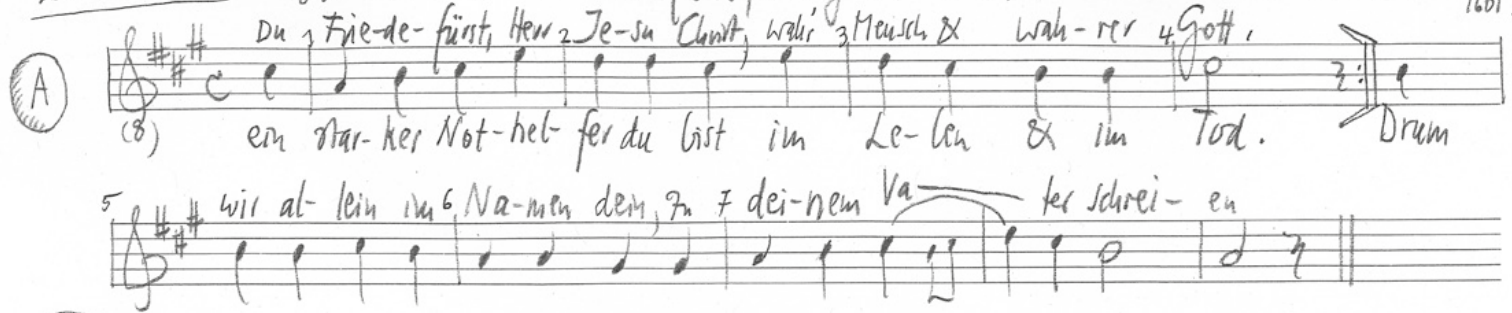 1601
Du 1 Frie-de-fürst, Herr 2 Je-su Christ, wahr' 3 Mensch & wah-rer 4 Gott.
A
(8) ein star-ker Not-hel-fer du bist im Le-ben & im Tod. Drum
5 wir al-lein im 6 Na-men dein, zu 7 dei-nem Va-ter schrei-en